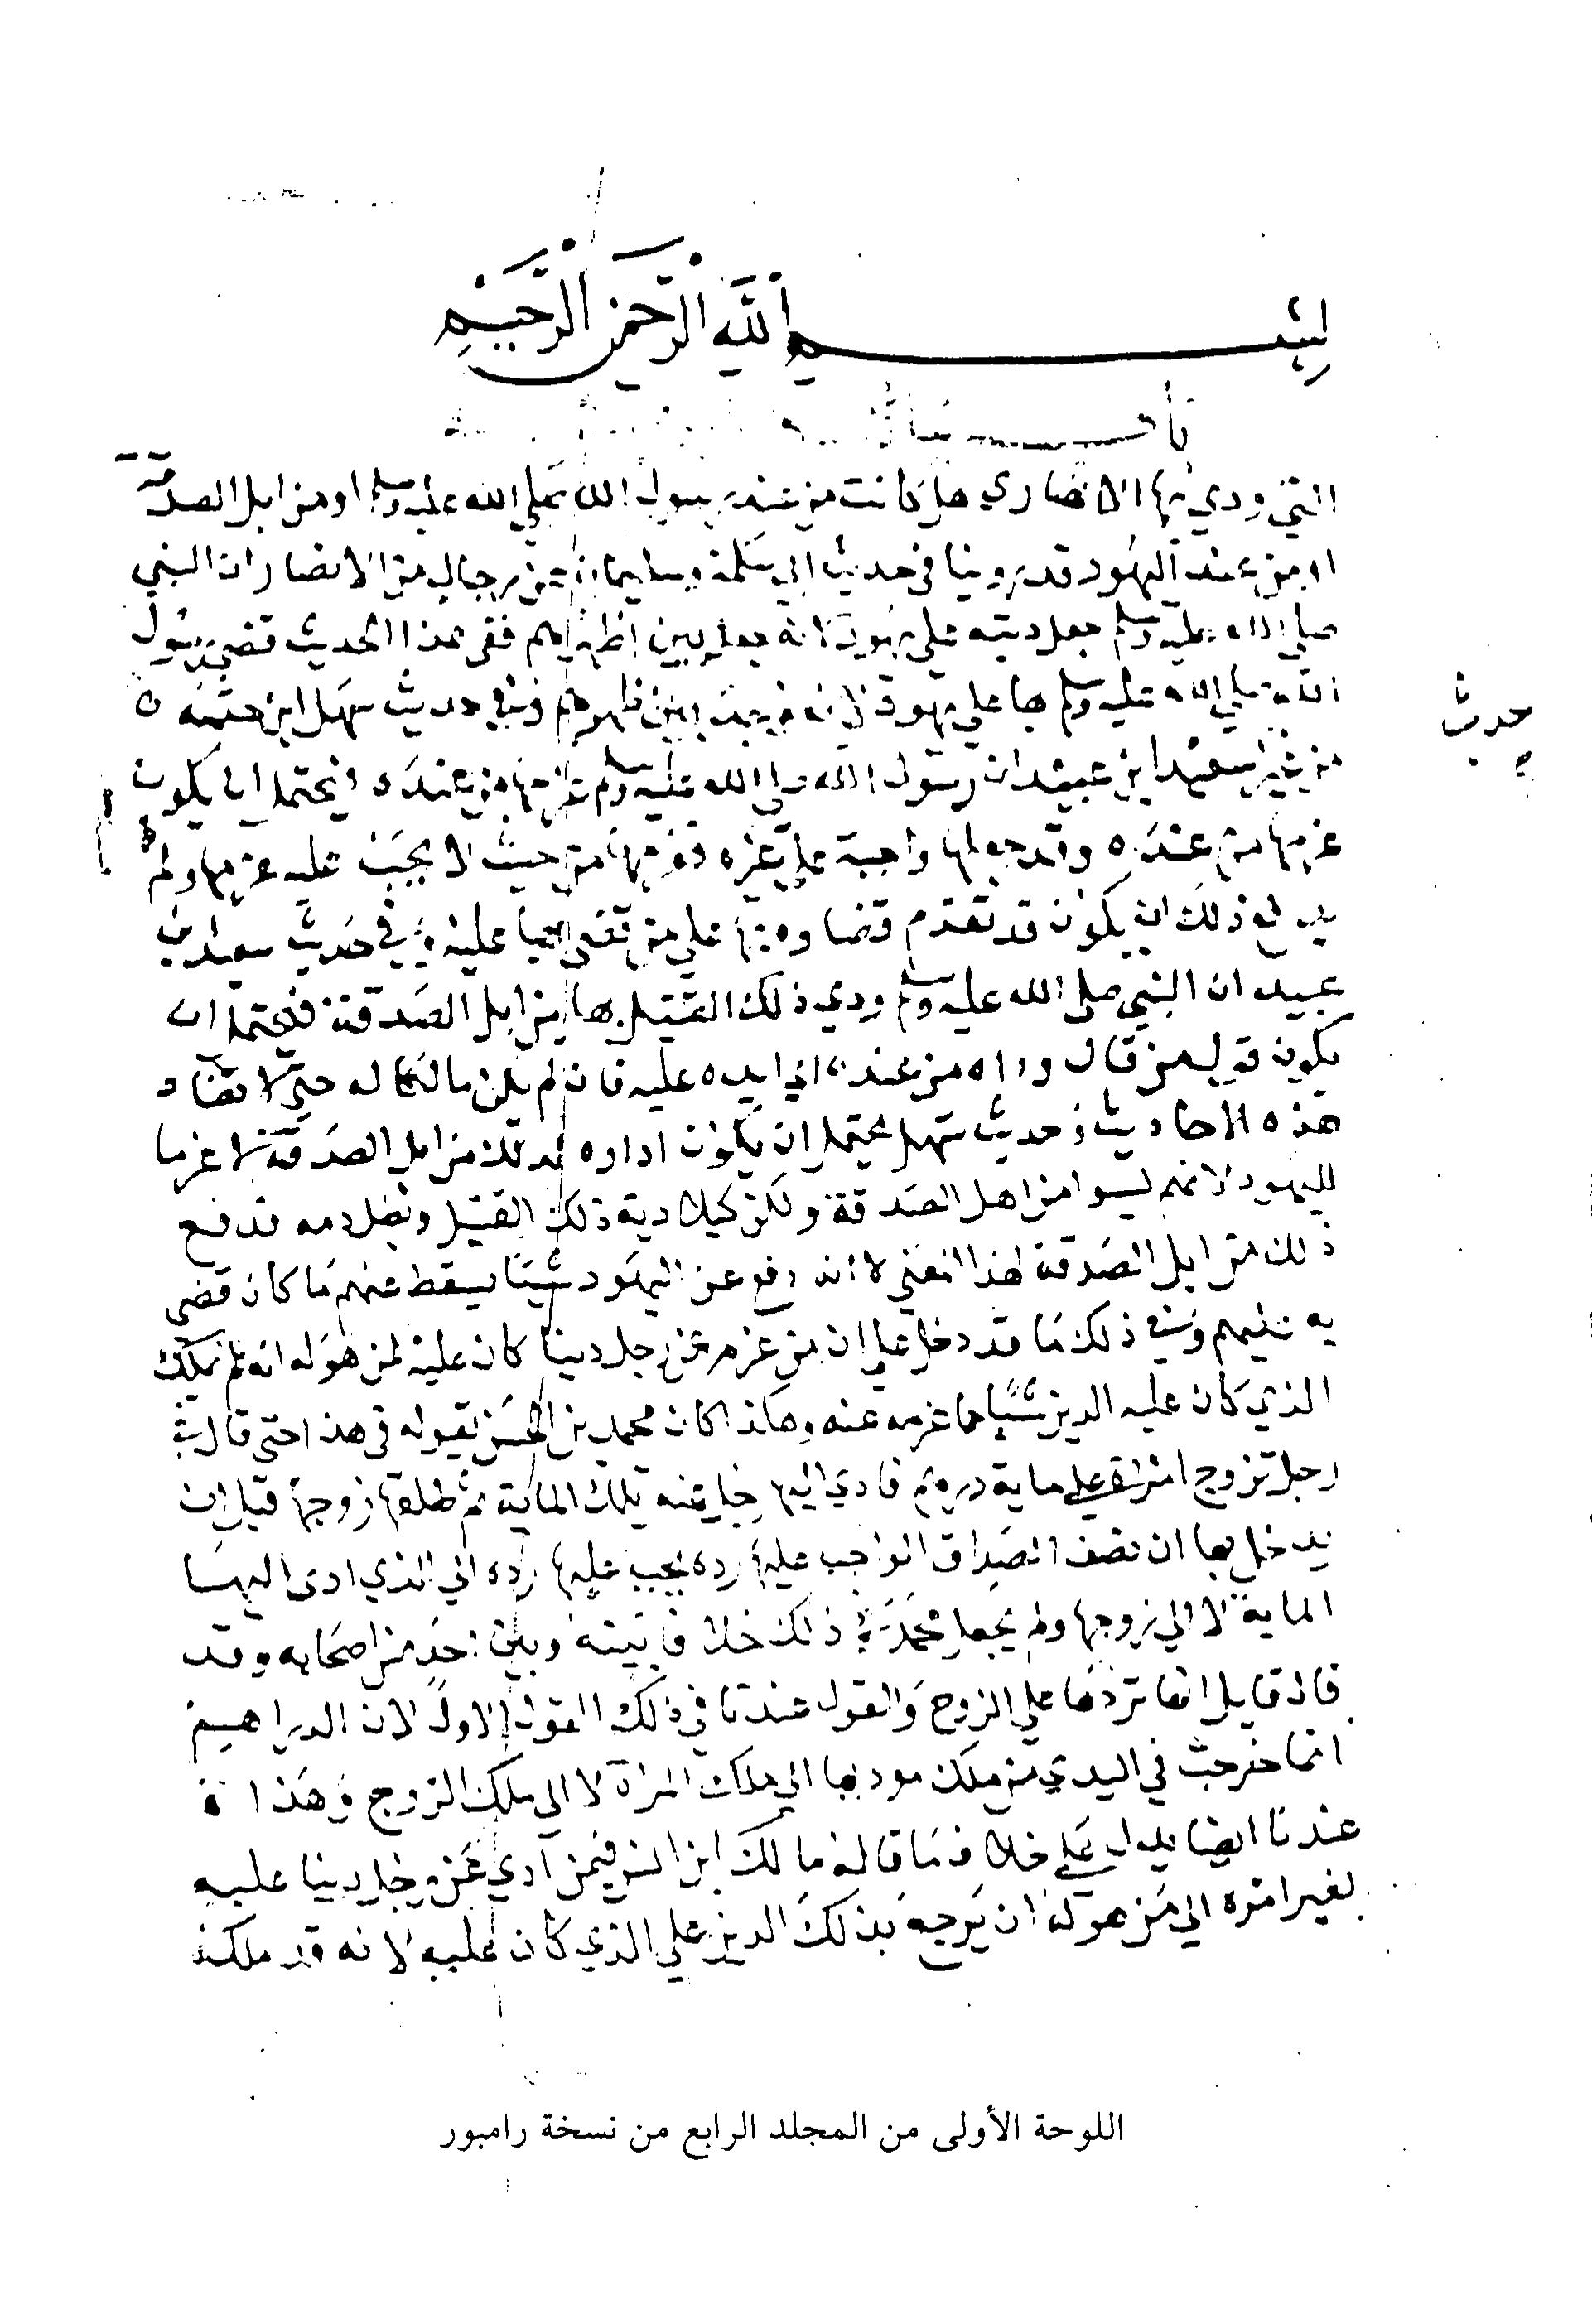 بسم الله الرحمن الرحيم
التي ودي بها الانصاري هل كانت من عند رسول الله صلى الله عليه وسلم او من ابل الصدقة
او من عند اليهود قد روينا في حديث ابي سلمة وسليمان عن رجال من الانصار ان النبي
صلى الله عليه وسلم جعل ديته على يهود لانه بين اظهرهم ففي هذا الحديث قضى رسول
الله صلى الله عليه وسلم بها على يهود لانه وجد بين ظهرهم وفي حديث سهل ابن حثمه
حديث
سعيد ابن عبيد ان رسول الله صلى الله عليه وسلم من عنده يحتمل ان يكون
غرمها من عنده وقد جعلها واجبة على غيره من حيث لا يجب عليه غرمها ولم
ذلك ان يكون قد تقدم قضاوه بها على من قضى بها عليه وفي حديث سعيد بن
عبيد ان النبي صلى الله عليه وسلم ودي ذلك القتيل بها من ابل الصدقة فيحتمل ان
يكون قول من قال وداه من عنده اي يده عليه فان لم يكن مالكا له حتى لا تضاد
هذه الاحاديث وحديث سهل يحتمل ان يكون اداره لذلك من ابل الصدقة لا غرما
لليهود لانهم ليسوا من اهل الصدقة ولكن كيلا دية ذلك القتيل وبطل دمه فدفع
ذلك من ابل الصدقة لهذا المعنى لا انه دفع عن اليهود شيئا يسقط عنهم ما كان قضى
به عليهم وفي ذلك ما قد دخل على ان من غرم عن رجل دينا كان عليه لمن هو له انه لم يملك
الذي كان عليه الدين شيئا مما غرمه عنه وهكذا كان محمد بن الحسن يقوله في هذا حتى قال في
رجل تزوج امراة على ماية درهم فادي اليها رجل عنه تلك الماية ثم طلقها زوجها قبل ان
يدخل بها ان نصف الصداق الواجب عليها رده يجب عليها رده الى الذي ادى اليها
الماية لا الى زوجها ولم يجعل محمد في ذلك خلافا بينه وبين احد من اصحابه وقد
قال قايل انها تردها على الزوج والقول عندنا في ذلك القول الاول لان الدراهم
انما خرجت في البدي من ملك موديها الى ملك المراة لا الى ملك الزوج وهذا
عندنا ايضا يدل على خلاف ما قاله مالك ابن انس فيمن ادي عن رجل دينا عليه
بغير امره الى من هو له ان يرجع بذلك الدين على الذي كان عليه لانه قد ملكه
اللوحة الأولى من المجلد الرابع من نسخة رامبور